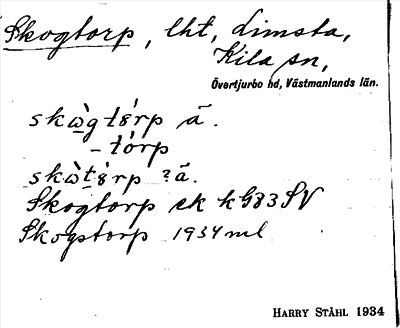 Skogtorp, lht, Limsta,
Kila sn,
Övertjurbo hd, Västmanlands län.
skὼgtórp ã.
– tórp
skὼtórp ? ã.
Skogtorp ek kG83SV
Skogstorp 1934 ml
HARRY STÅHL 1934